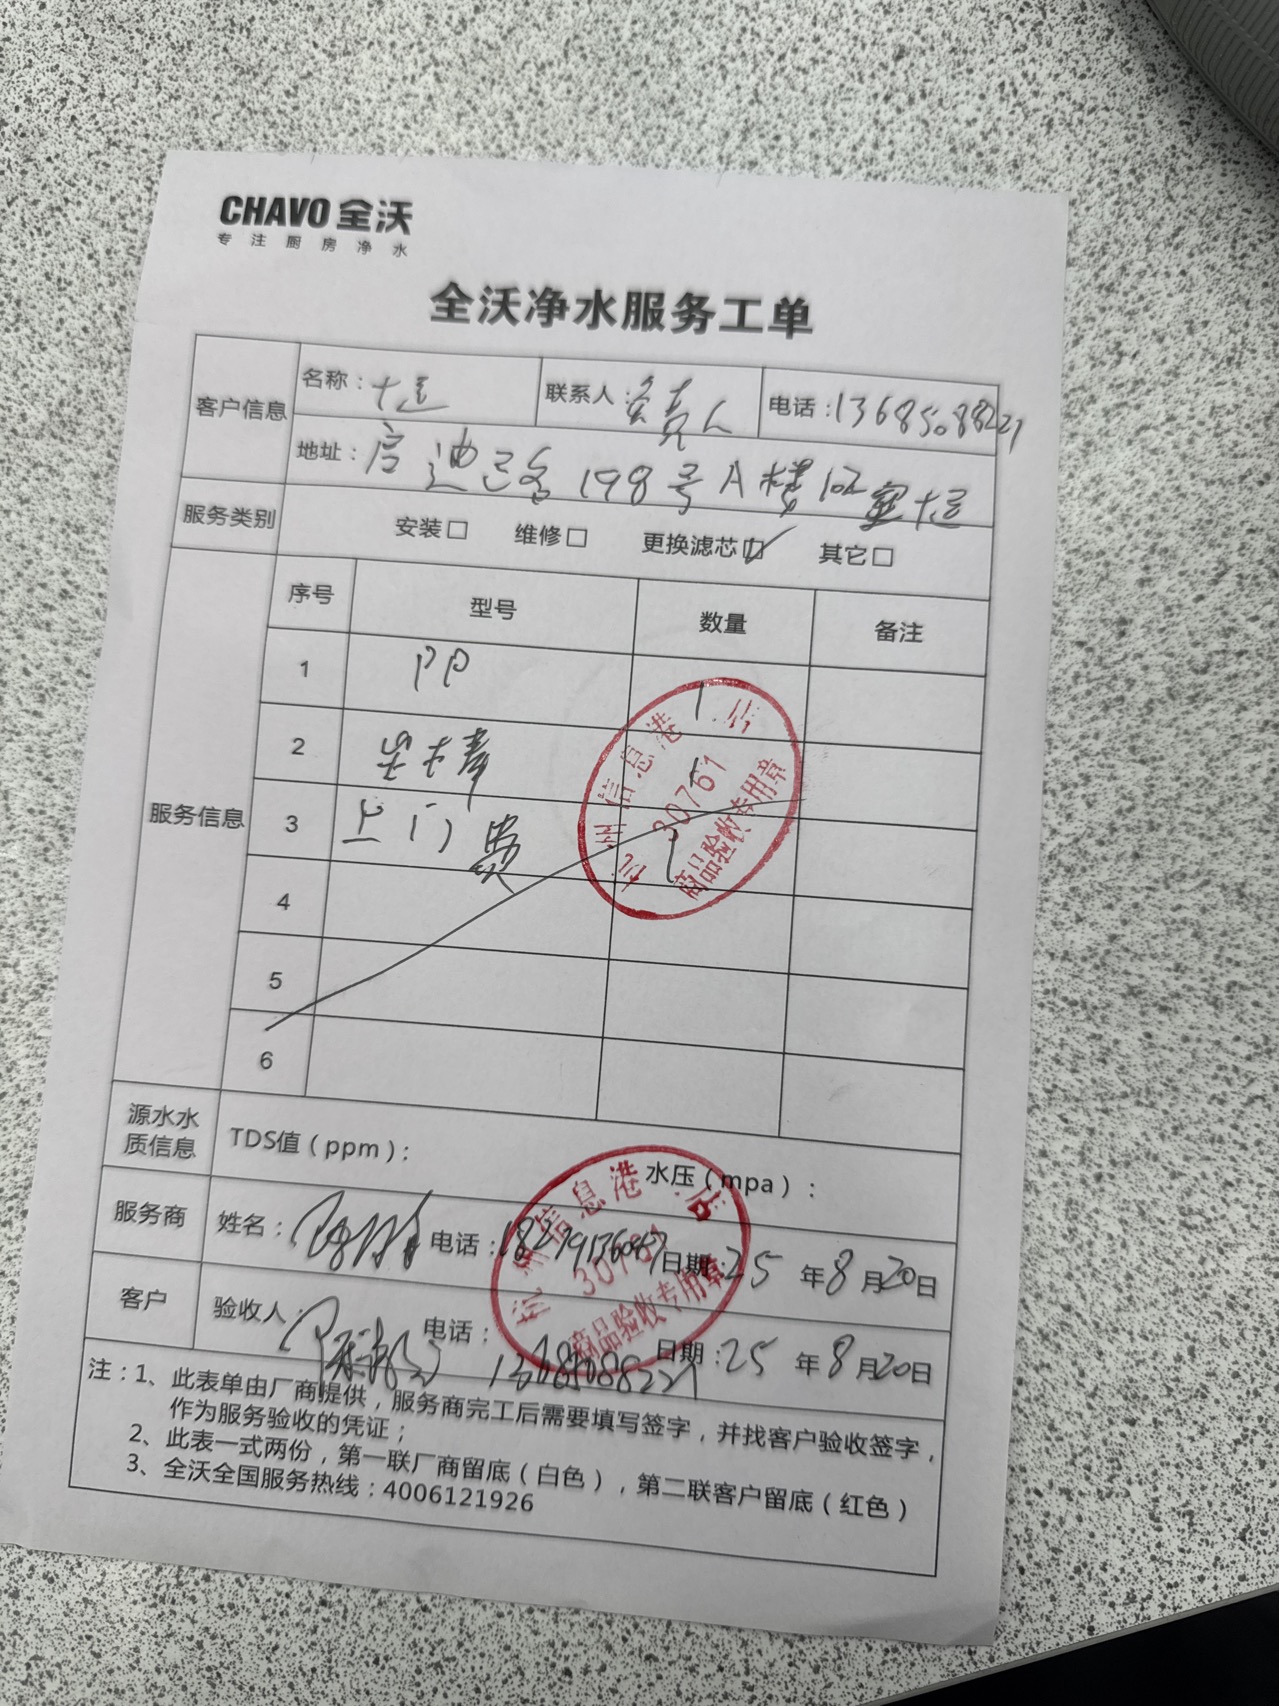 CHAVO 全沃
专注厨房净水
全沃净水服务工单
客户信息 名称：十足 联系人：负责人 电话：13685088221
地址： 迪 路198号A楼 室十足
服务类别 安装□ 维修□ 更换滤芯☑ 其它□
服务信息 序号 型号 数量 备注
1 PP 1
2 1
3 上门费 1
4
5
6
杭州信息港 店
30761
商品验收专用章
源水水质信息 TDS值（ppm）： 水压（mpa）：
服务商 姓名： 电话： 日期：25年8月20日
客户 验收人： 电话：13685088221 日期：25年8月20日
杭州信息港 店
30761
商品验收专用章
注：1、此表单由厂商提供，服务商完工后需要填写签字，并找客户验收签字，
作为服务验收的凭证；
2、此表一式两份，第一联厂商留底（白色），第二联客户留底（红色）
3、全沃全国服务热线：4006121926